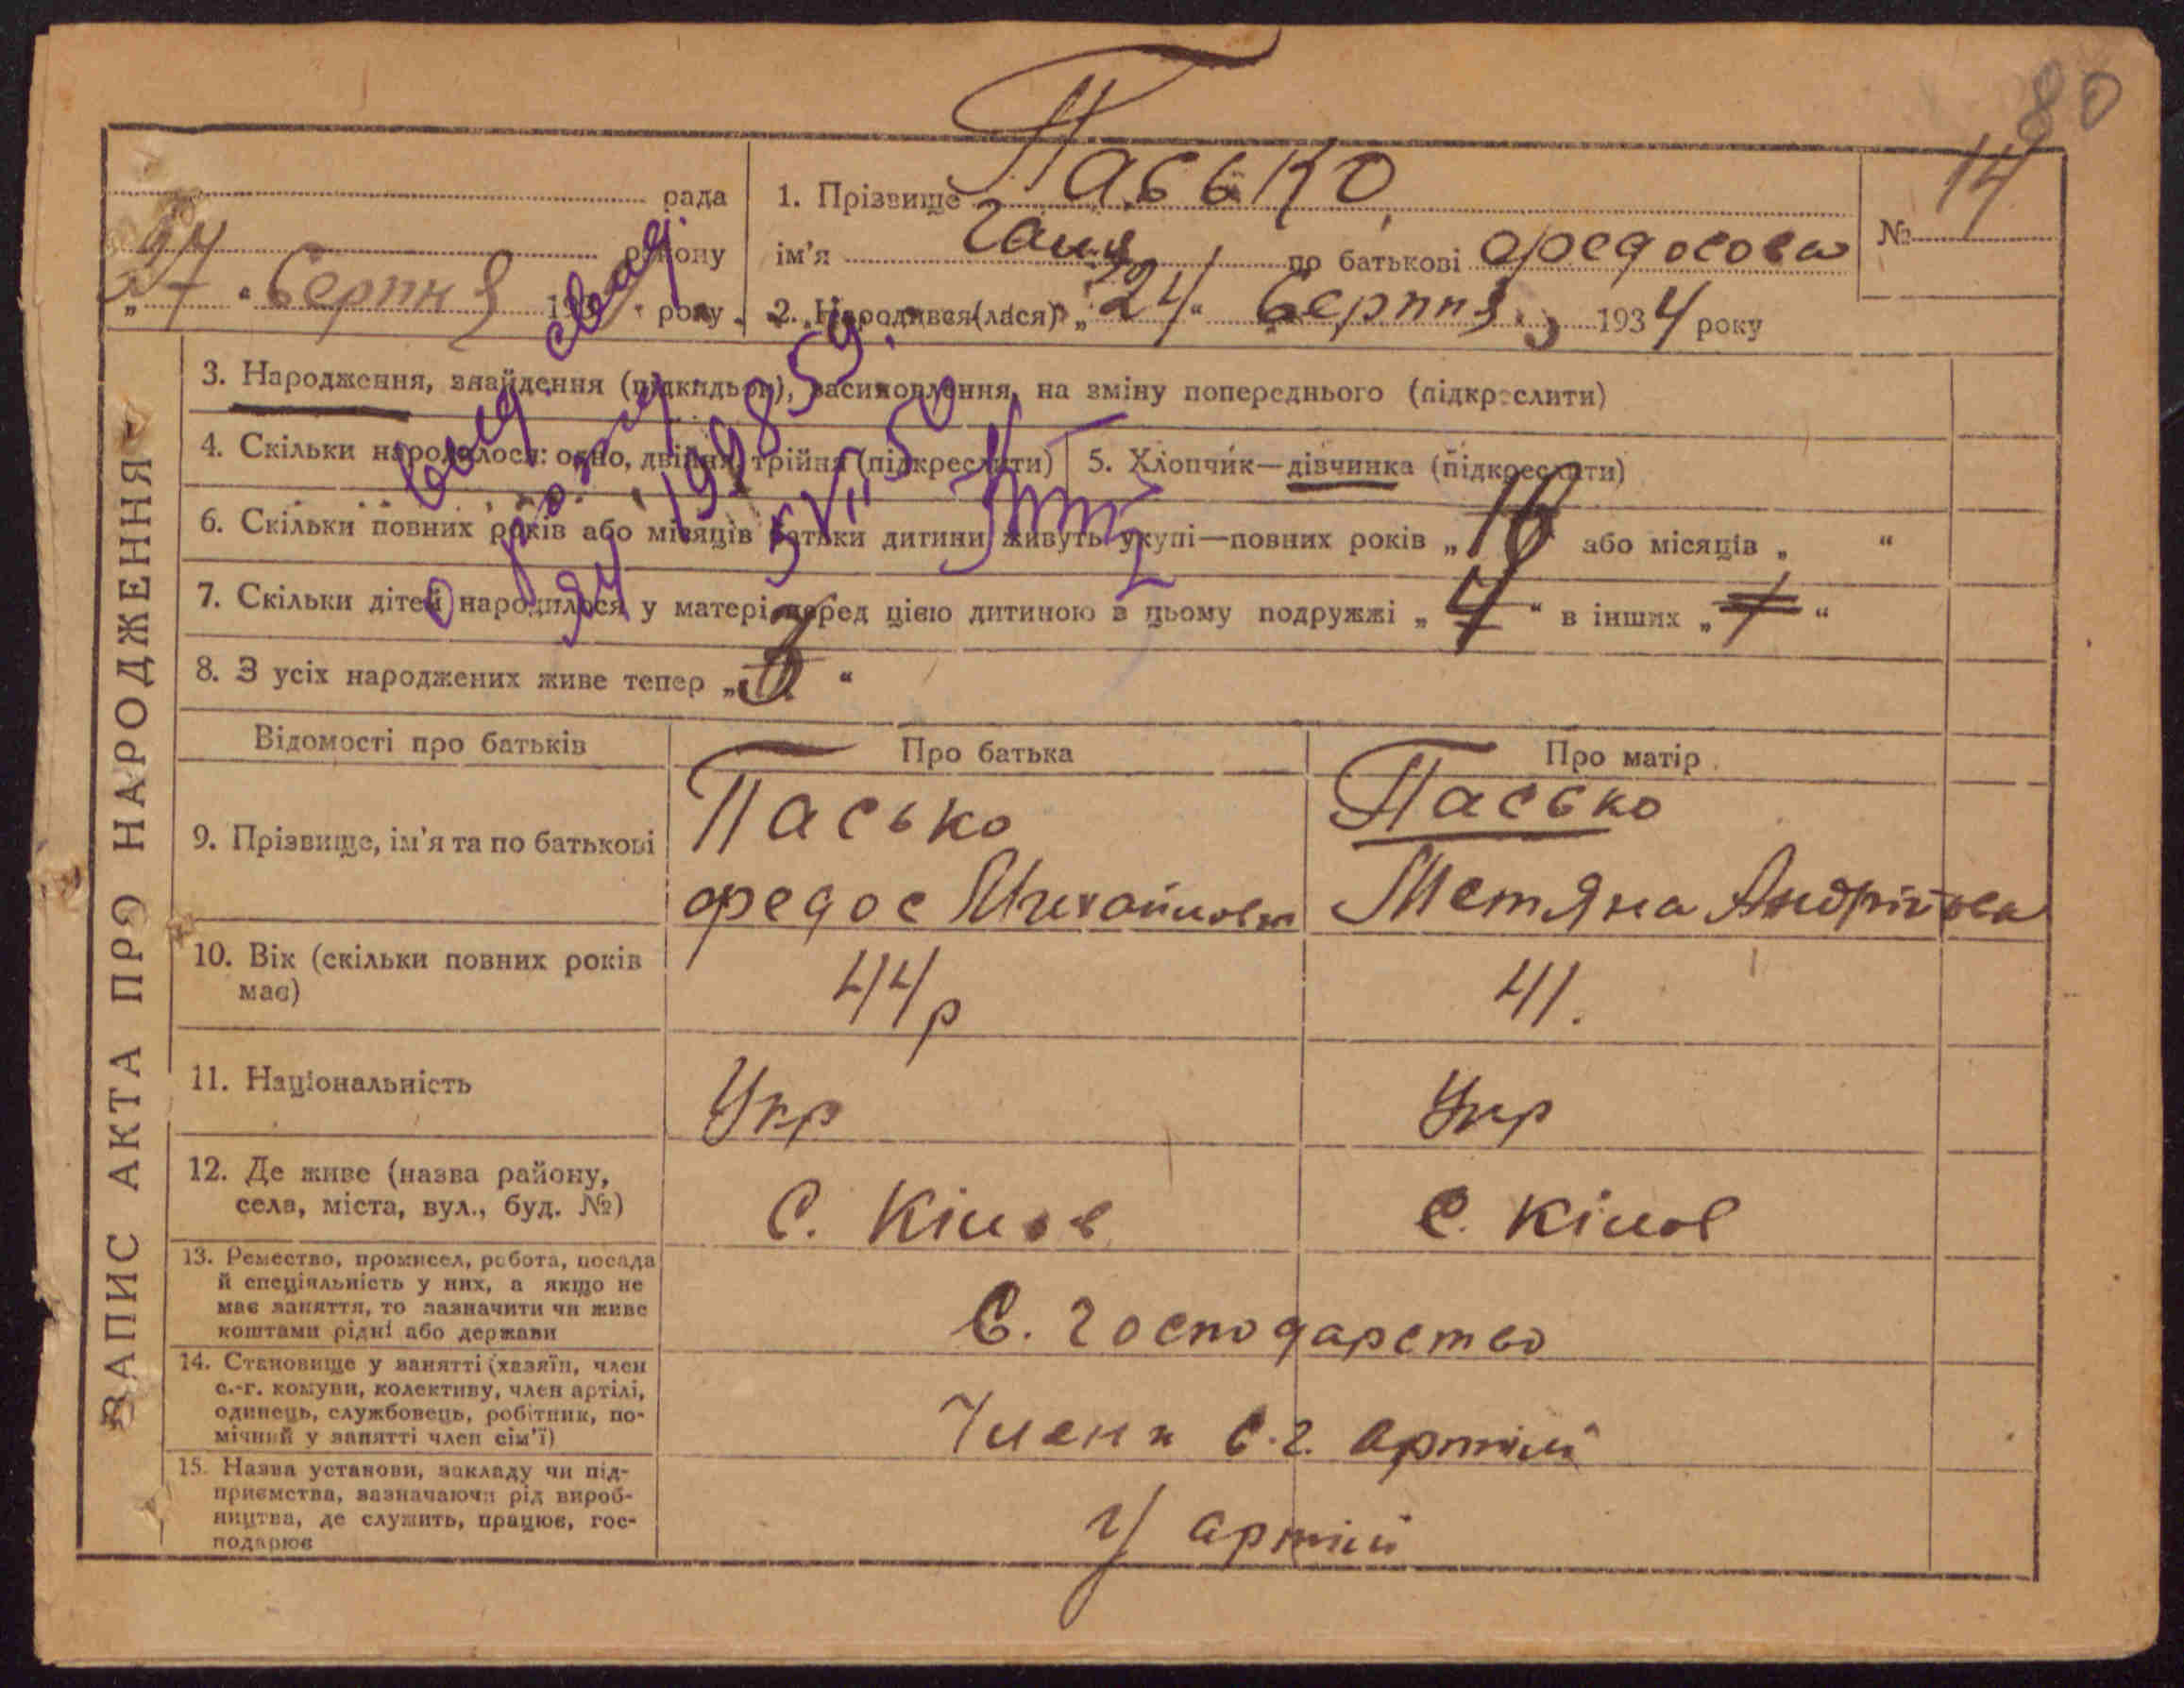 80
рада
району
„27“ Серпня 193 року
1. Прізвище Пасько
ім'я Ганя по батькові Федосова
№ 14
2. Народився(лася) „24“ Серпня 1934 року
ЗАПИС АКТА ПРО НАРОДЖЕННЯ
3. Народження, знайдення (підкидьок), засиновлення, на зміну попереднього (підкреслити)
4. Скільки народилося: одно, двійня, трійня (підкреслити)
5. Хлопчик—дівчинка (підкреслити)
6. Скільки повних років або місяців батьки дитини живуть укупі—повних років „16“ або місяців „ “
7. Скільки дітей народилося у матері перед цією дитиною в цьому подружжі „4“ в інших „ “
8. З усіх народжених живе тепер „3“
выд. свид.
о рожд
Відомості про батьків
Про батька
Про матір
9. Прізвище, ім'я та по батькові
Пасько
Федос Михайлович
Пасько
Метяна Андріївна
10. Вік (скільки повних років
має)
44р
41.
11. Національність
Укр
Укр
12. Де живе (назва району,
села, міста, вул., буд. №)
С. Кілов
С. Кілов
13. Ремество, промисел, робота, посада
й спеціяльність у них, а якщо не
має заняття, то зазначити чи живе
коштами рідні або держави
С. Господарство
14. Становище у занятті (хазяїн, член
с.-г. комуни, колективу, член артілі,
одинець, службовець, робітник, по-
мічний у занятті член сім'ї)
Члени С.г. артілі
15. Назва установи, закладу чи під-
приємства, зазначаючи рід вироб-
ництва, де служить, працює, гос-
подарює
У артілі